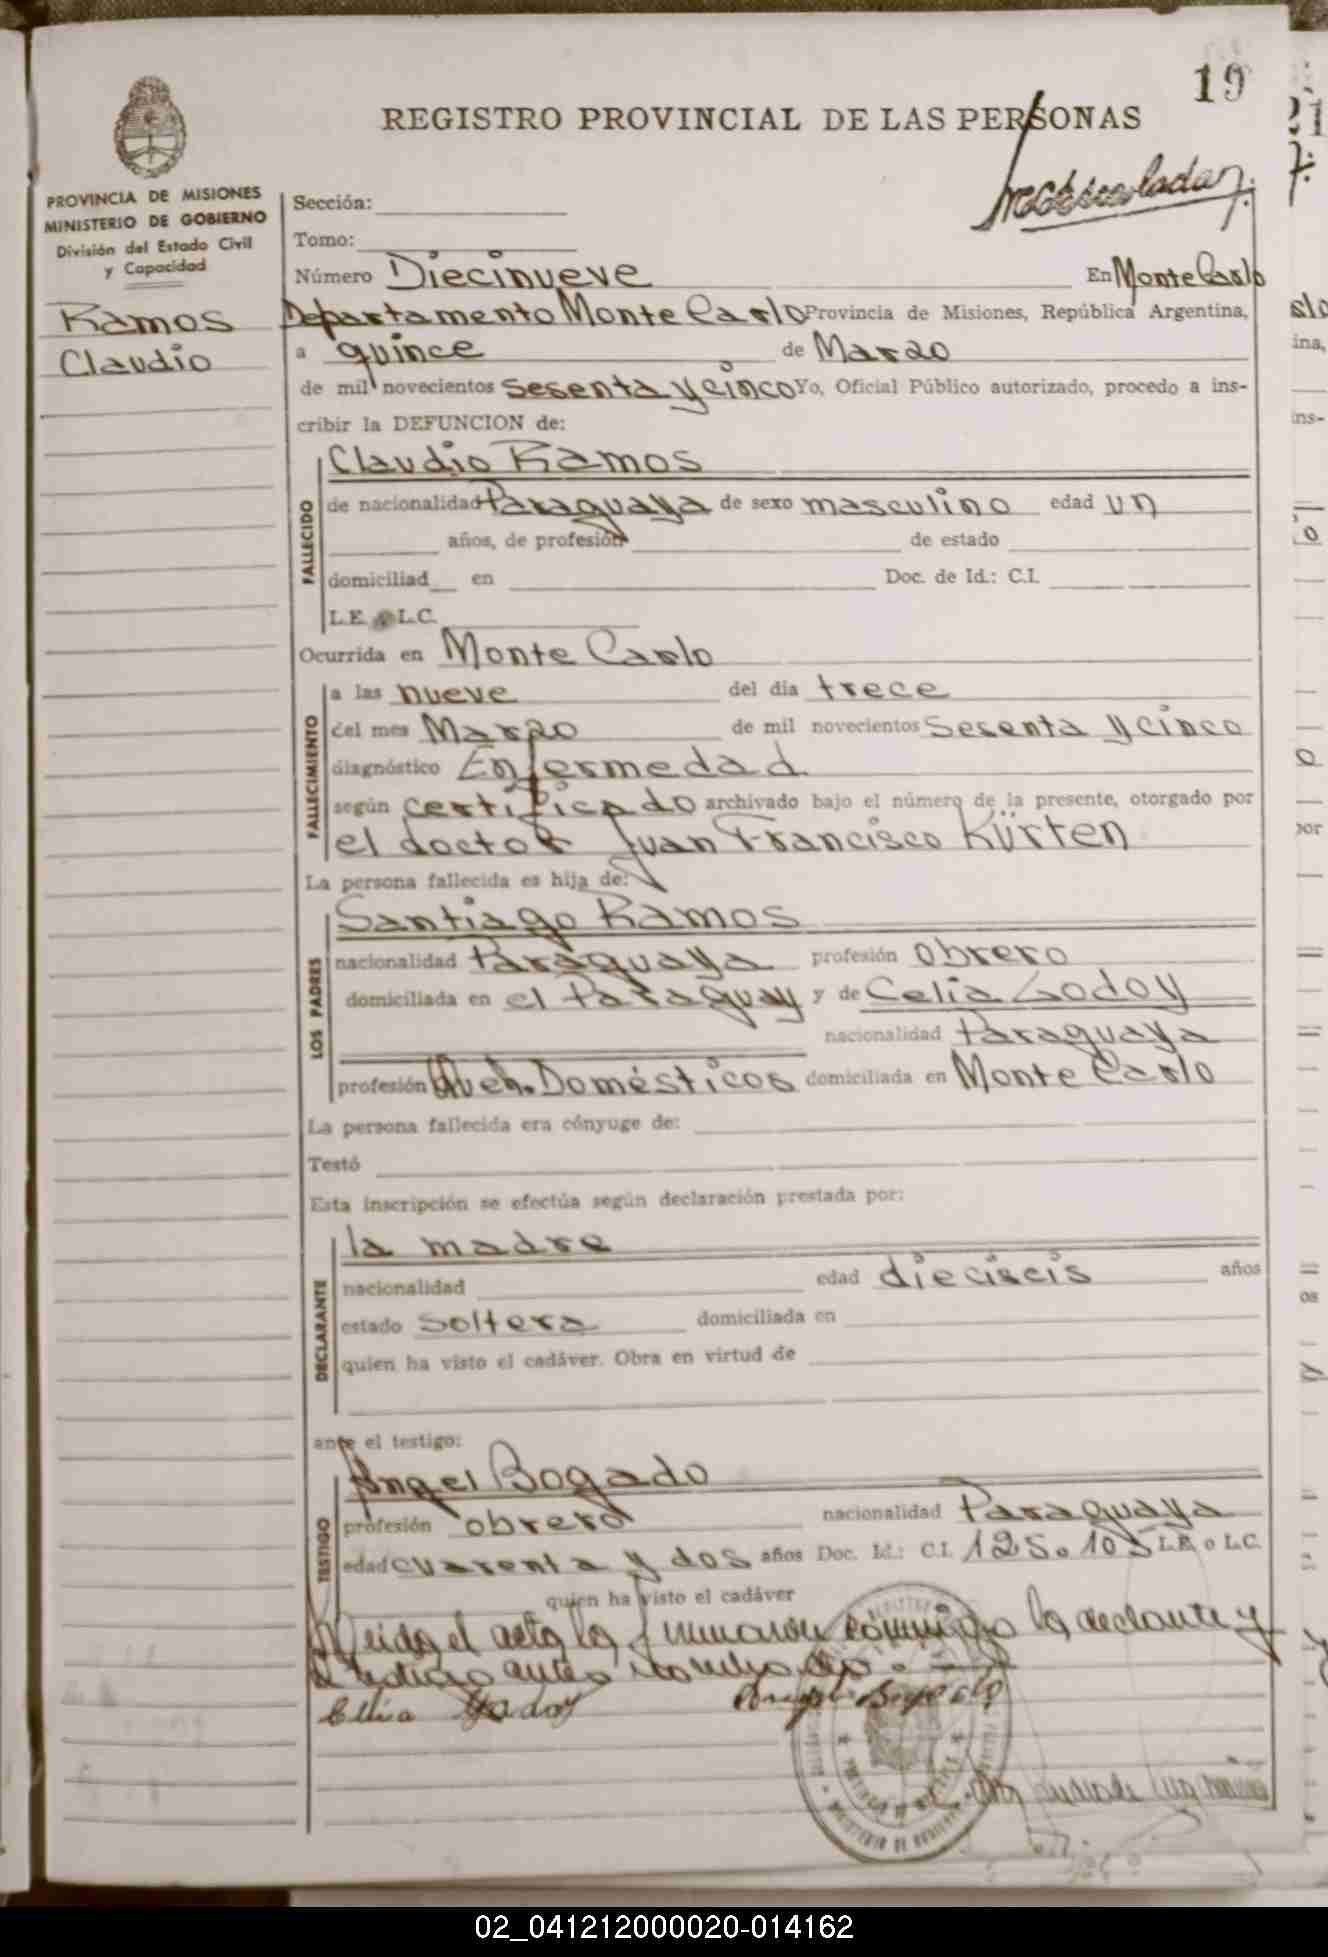 19
REGISTRO PROVINCIAL DE LAS PERSONAS
PROVINCIA DE MISIONES
MINISTERIO DE GOBIERNO
División del Estado Civil
y Capacidad
Ramos
Claudio
Sección:
Tomo:
Número Diecinueve En Monte Carlo
Departamento Monte Carlo Provincia de Misiones, República Argentina,
a quince de Marzo
de mil novecientos Sesenta y cinco Yo, Oficial Público autorizado, procedo a ins-
cribir la DEFUNCION de:
FALLECIDO
Claudio Ramos
de nacionalidad Paraguaya de sexo masculino edad un
años, de profesión de estado
domiciliad en Doc. de Id.: C.I.
L.E. o L.C.
Ocurrida en Monte Carlo
FALLECIMIENTO
a las nueve del día trece
del mes Marzo de mil novecientos Sesenta y cinco
diagnóstico Enfermedad
según certificado archivado bajo el número de la presente, otorgado por
el doctor Juan Francisco Kürten
La persona fallecida es hija de:
LOS PADRES
Santiago Ramos
nacionalidad Paraguaya profesión obrero
domiciliada en el Paraguay y de Celia Godoy
nacionalidad Paraguaya
profesión Queh. Domésticos domiciliada en Monte Carlo
La persona fallecida era cónyuge de:
Testó
Esta inscripción se efectúa según declaración prestada por:
DECLARANTE
la madre
nacionalidad edad dieciseis años
estado soltera domiciliada en
quien ha visto el cadáver. Obra en virtud de
ante el testigo:
TESTIGO
Angel Bogado
profesión obrero nacionalidad Paraguaya
edad cuarenta y dos años Doc. Id.: C.I. 125.105 L.E. o L.C.
quien ha visto el cadáver
Leida el acta la firmaron conmigo la declante y
el testigo antes
Celia Godoy
02_041212000020-014162